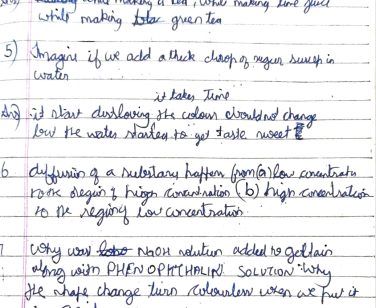 while making green tea
5) Imagine if we add a thick drop of sugar surup in
water
it takes Time
Ans) it start dissloving the colour chouldnot change
but the water started to get taste sweet
6 diffusion of a substany happen from (a) low concentrate
to the region of high concentration (b) high concentration
to the regiong low concentration.
7 Why was NaOH solution added to geltain
along with PHENOPHTHALIN SOLUTION. Why
the shape change turn colourless when we put it